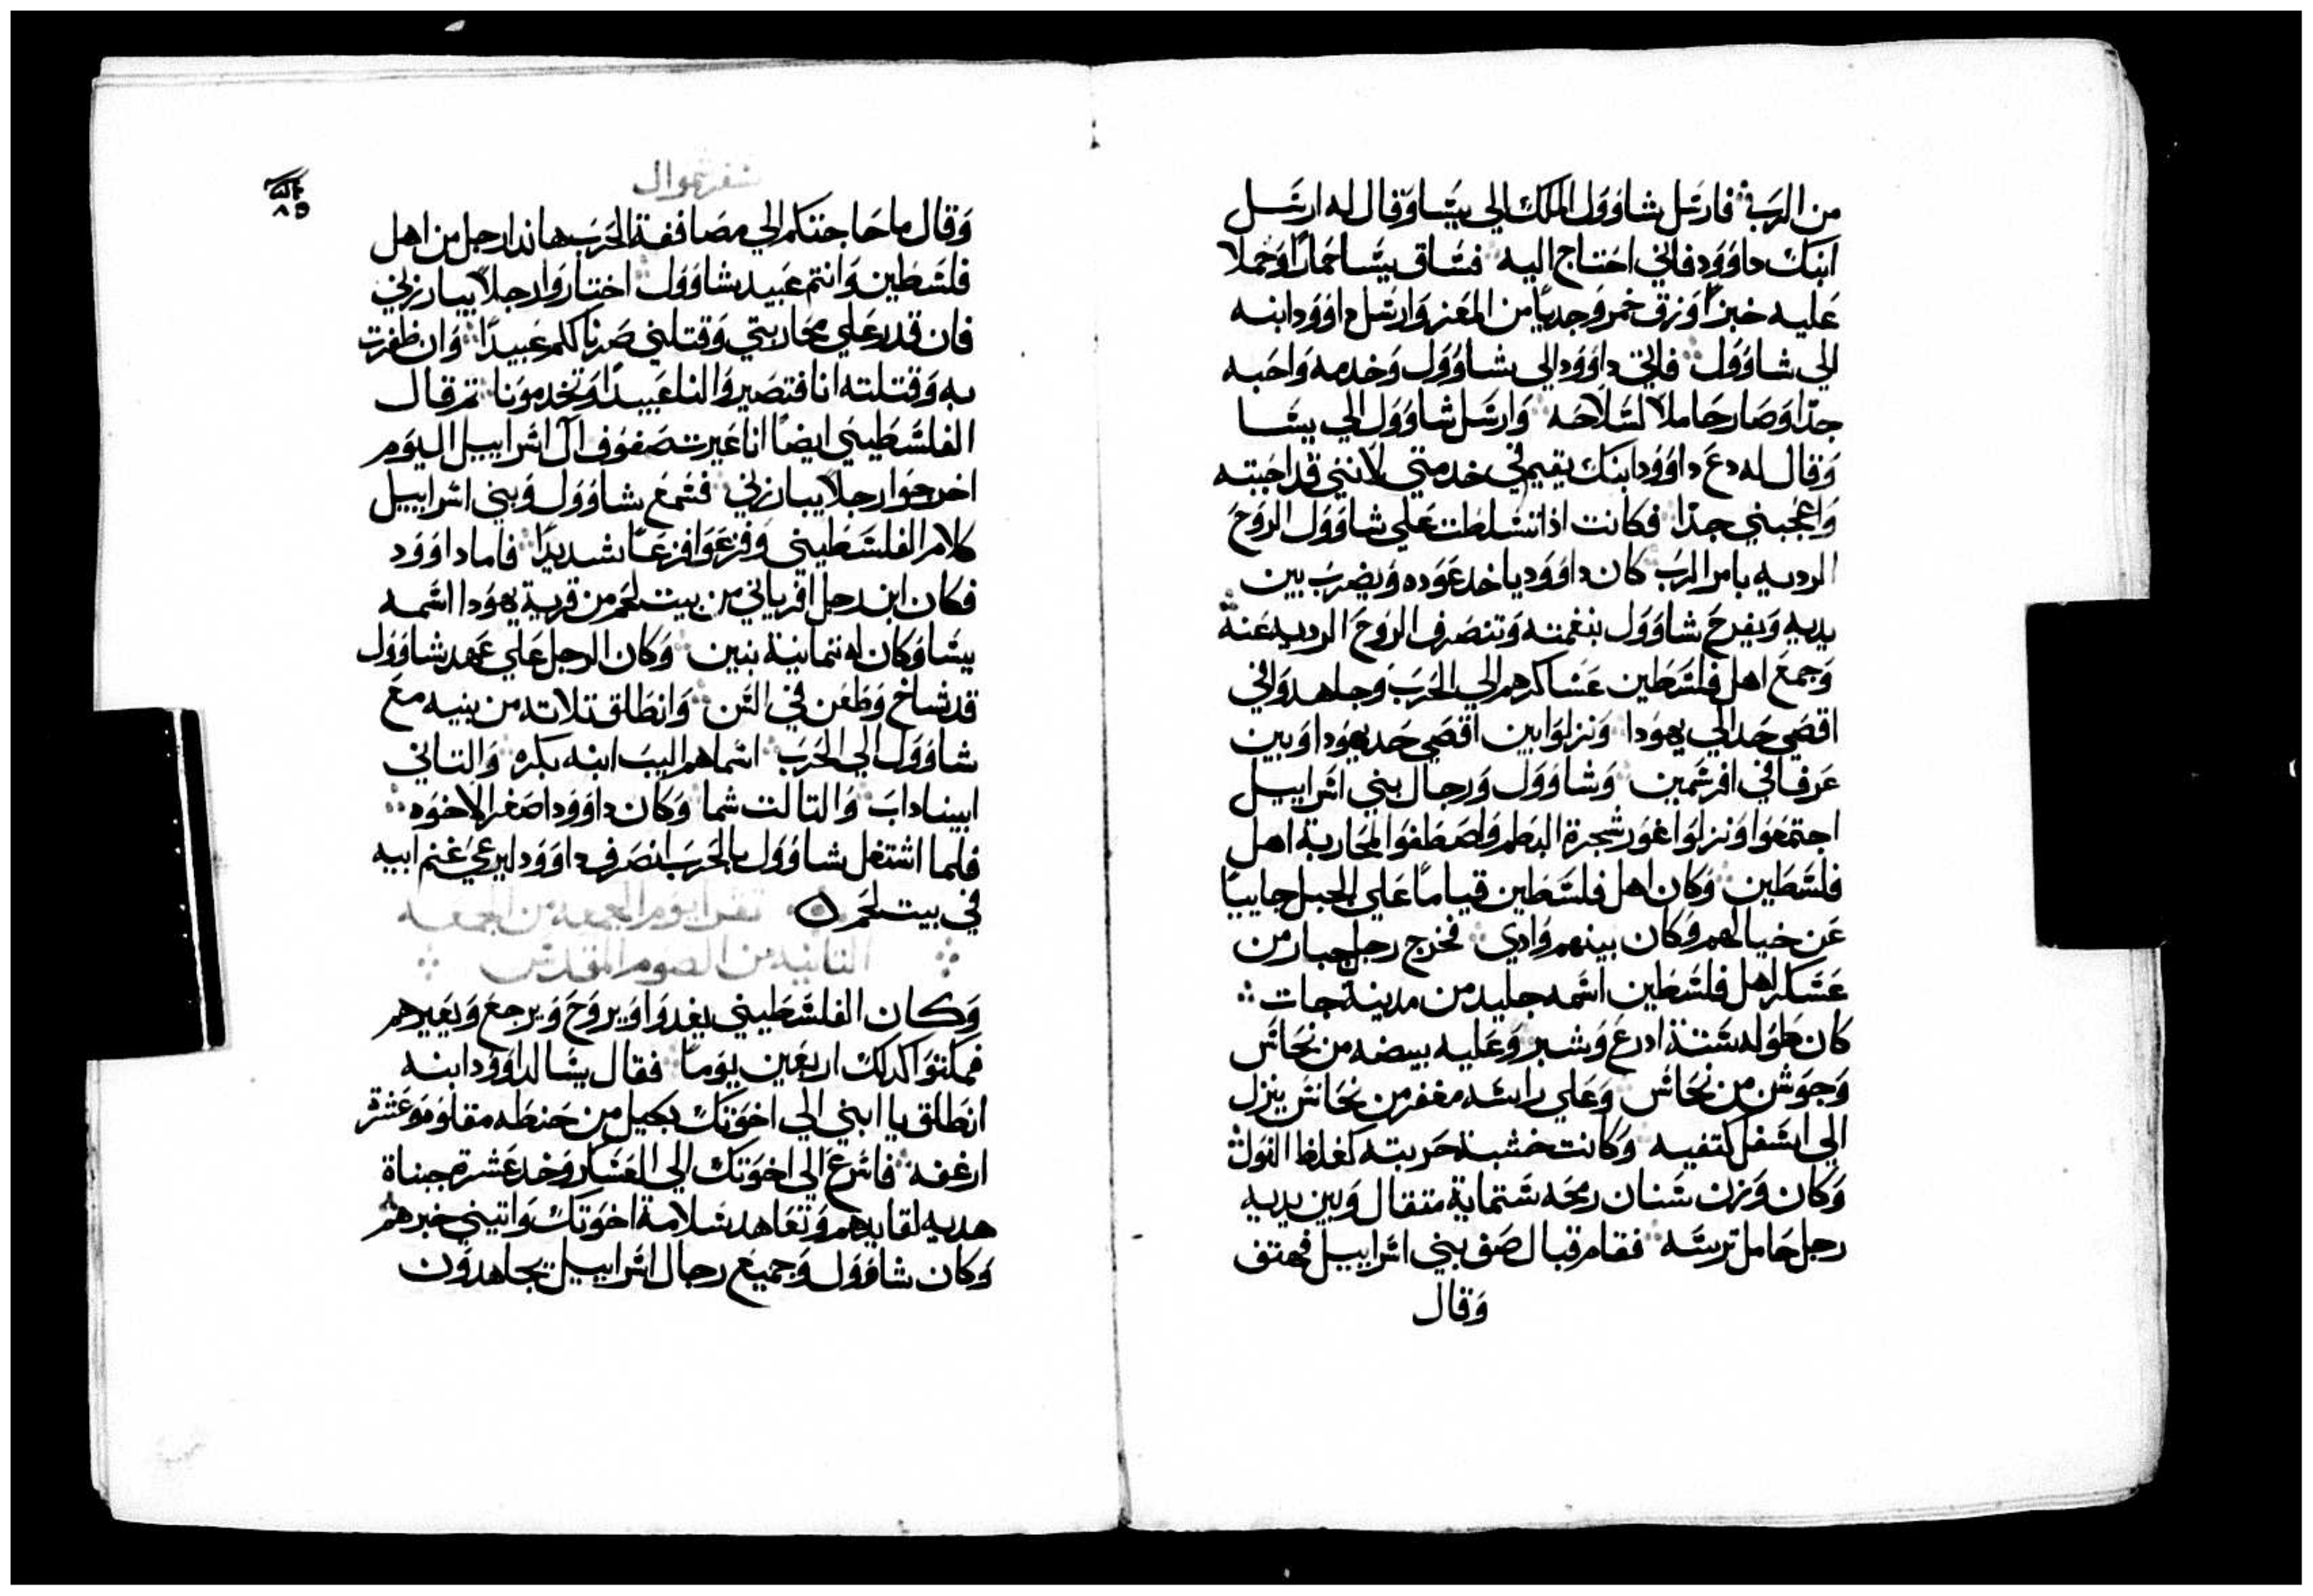 من الرب فارسل شاوول الملك الي يسا وقال له ارسل
ابنك داوود فاني احتاج اليه فساق يسا حمارا وحملا
عليه خبزا وزق خمر وجديا من المعز وارسل داوود ابنه
الي شاوول فاتي داوود الي شاوول وخدمه واحبه
جدا وصار حاملا لسلاحه وارسل شاوول الي يسا
وقال له دع داوود ابنك يقيم في خدمتي لانني قد احببته
واعجبني جدا فكانت اذا تسلطت علي شاوول الروح
الرديه بامر الرب كان داوود ياخد عوده ويضرب بين
يديه ويفرح شاوول بنغمته وتنصرف الروح الرديه عنه
وجمع اهل فلسطين عساكرهم الي الحرب وجاهدوا في
اقصي حد الي يهودا ونزلوا بين اقصي حد يهودا وبين
عرفا في افرسمين وشاوول ورجال بني اسراييل
اجتمعوا ونزلوا غور شجرة البطم واصطفوا لمحاربة اهل
فلسطين وكان اهل فلسطين قياما علي الجبل جاييا
عن خيالهم وكان بينهم وادي فخرج رجل جبار من
عسكر اهل فلسطين اسمه جليد من مدينة جات
كان طوله ستة ادرع وشبر وعليه بيضه من نحاس
وجوشن من نحاس وعلي راسه مغفر من نحاس ينزل
الي اسفل كتفيه وكانت خشبة حربته كغلظ النول
وكان وزن سنان رمحه ستماية متقال وبين يديه
رجل حامل ترسه فقام قبال صف بني اسراييل فهتف
وقال
سفر سموال
٨٥
وقال ما حاجتكم الي مصاففة الحرب هاندا رجل من اهل
فلسطين وانتم عبيد شاوول اختاروا رجلا يبارزني
فان قدر علي محاربتي وقتلني صرنا لكم عبيدا وان ظفرت
به وقتلته انا فتصيروا لنا عبيدا وتخدمونا تم قال
الفلسطيني ايضا انا عيرت صفوف ال اسراييل اليوم
اخرجوا رجلا يبارزني فسمع شاوول وبني اسراييل
كلام الفلسطيني وفزعوا فزعا شديدا فاما داوود
فكان ابن رجل افرياني من بيت لحم من قرية يهودا اسمه
يسا وكان له تمانية بنين وكان الرجل علي عهد شاوول
قد شاخ وطعن في السن وانطلق تلاته من بنيه مع
شاوول الي الحرب اسماهم اليب ابنه بكره والتاني
ابيناداب والتالت شما وكان داوود اصغر الاخوه
فلما اشتغل شاوول بالحرب انصرف داوود ليرعي غنم ابيه
في بيت لحم تقرا يوم الجمعه من الجمعه
التانيه من الصوم المقدس
وكان الفلسطيني يغدوا ويروح ويرجع ويعيرهم
فمكتوا كدلك اربعين يوما فقال يسا لداوود ابنه
انطلق يا ابني الي اخوتك بكيل من حنطه مقلوه وعشرة
ارغفه فاسرع الي اخوتك الي العسكر وخد عشرة جبناة
هديه لقايدهم وتعاهد سلامة اخوتك واتيني خبرهم
وكان شاوول وجميع رجال اسراييل يجاهدون